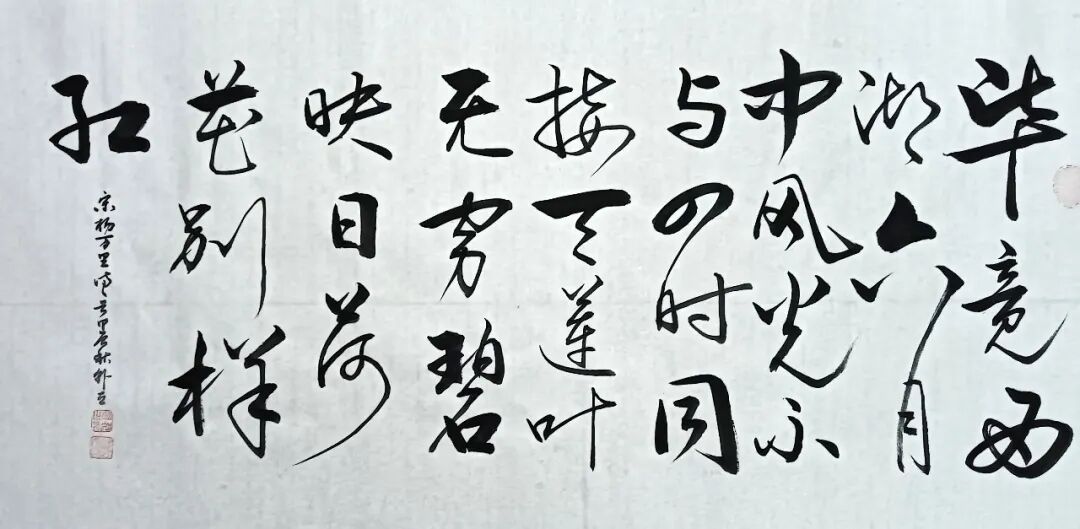 毕竟西
湖六月
中风光不
与四时同
接天莲叶
无穷碧
映日荷
花别样
红
宋杨万里诗